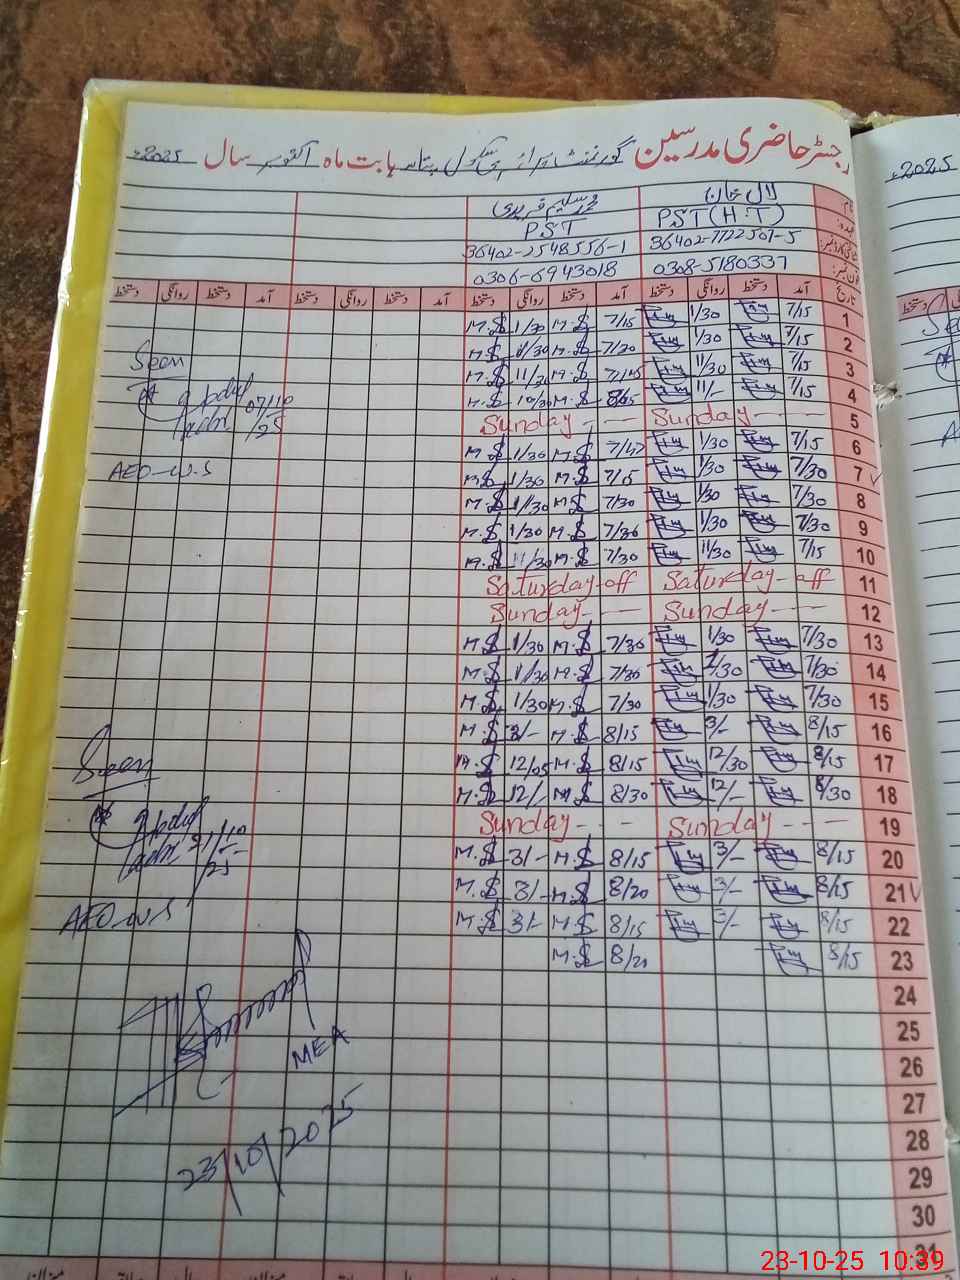 رجسٹر حاضری مدرسین گورنمنٹ پرائمری سکول بابت ماہ اکتوبر سال 2025ء
2025ء
نام لال خان محمد سلیم فریدی
عہدہ PST (H.T) PST
36402-7722507-5 36402-2548556-1
فون نمبر 0308-5180337 0306-6943018
تاریخ آمد دستخط روانگی دستخط آمد دستخط روانگی دستخط آمد دستخط روانگی دستخط آمد دستخط روانگی دستخط
1 7/15 1/30 7/15 M.S 1/30 M.S
2 7/15 1/30 7/30 M.S 1/30 M.S
3 7/15 11/30 M.S 11/30 M.S
4 7/15 11/- M.S M.S
5 Sunday Sunday
6 7/15 1/30 M.S 1/30 M.S
7 7/30 1/30 7/15 M.S 1/30 M.S
8 7/30 1/30 7/30 M.S 1/30 M.S
9 7/30 1/30 7/30 M.S 1/30 M.S
10 7/15 11/30 7/30 M.S 11/30 M.S
11 Saturday-off Saturday-off
12 Sunday Sunday
13 7/30 1/30 7/30 M.S 1/30 M.S
14 7/30 1/30 7/30 M.S 1/30 M.S
15 7/30 1/30 7/30 M.S 1/30 M.S
16 8/15 3/- 8/15 M.S 3/- M.S
17 8/15 12/30 8/15 M.S 12/05 M.S
18 8/30 12/- 8/30 M.S 12/- M.S
19 Sunday Sunday
20 8/15 3/- 8/15 M.S 3/- M.S
21 8/15 3/- 8/20 M.S 3/- M.S
22 8/15 3/- 8/15 M.S 3/- M.S
23 8/15 8/20 M.S
24
25
26
27
28
29
30
31
Seen
07/10/25
AEO-W.S
Seen
21/10/25
AEO-W.S
MEA
23/10/2025
23-10-25 10:39